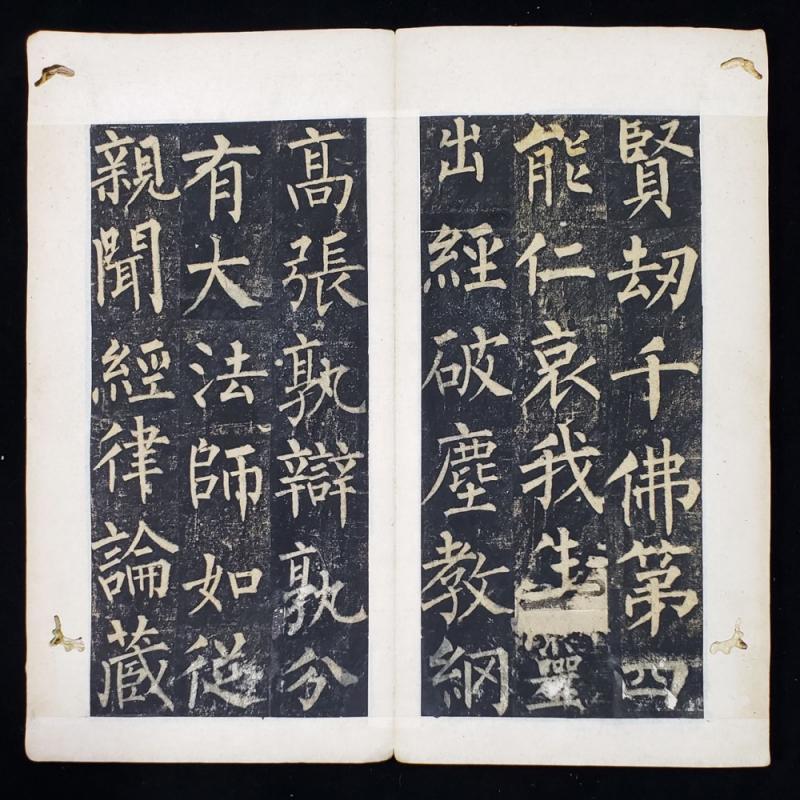 賢劫千佛第四
能仁哀我生靈
出經破塵教綱
高張孰辯孰分
有大法師如從
親聞經律論藏